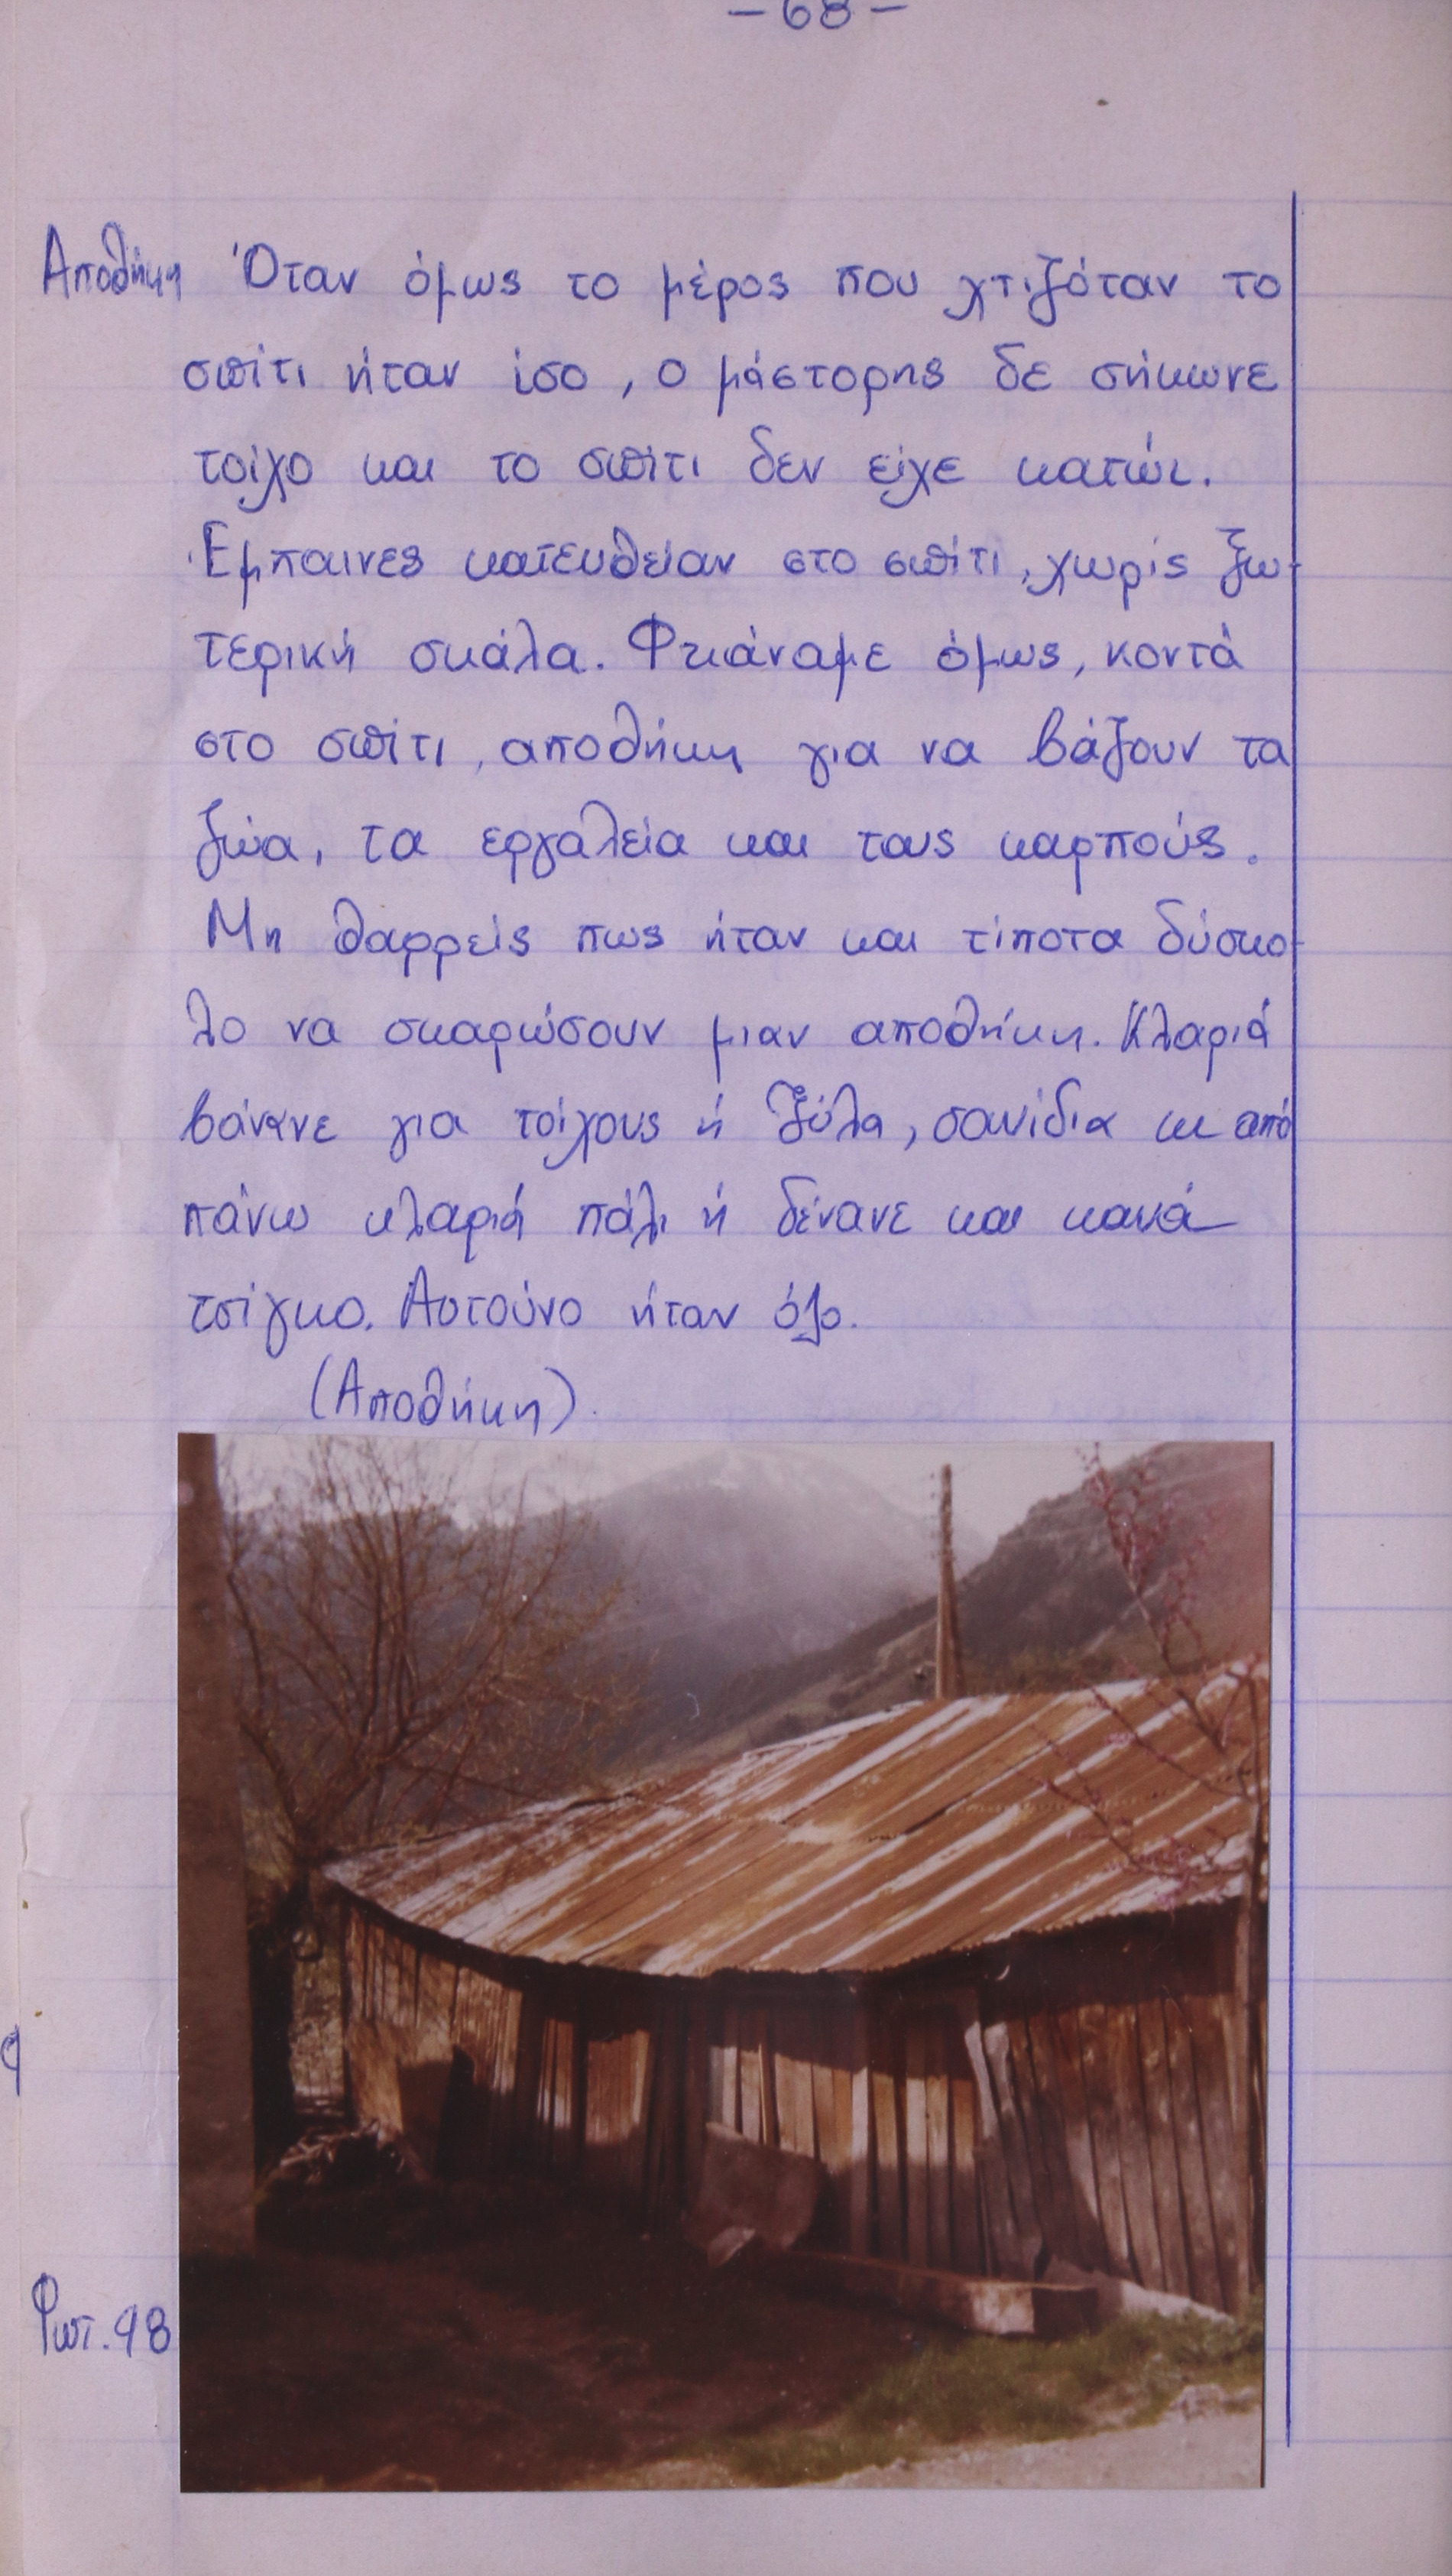 -68-
Αποθήκη Όταν όμως το μέρος που χτιζόταν το
σπίτι ήταν ίσο, ο μάστορης δε σήκωνε
τοίχο και το σπίτι δεν είχε κατώι.
Έμπαινες κατευθείαν στο σπίτι, χωρίς ξω-
τερική σκάλα. Φκιάναμε όμως, κοντά
στο σπίτι, αποθήκη για να βάζουν τα
ζώα, τα εργαλεία και τους καρπούς.
Μη θαρρείς πως ήταν και τίποτα δύσκο-
λο να σκαρώσουν μιαν αποθήκη. Κλαριά
βάνανε για τοίχους ή ξύλα, σανίδια κι από
πάνω κλαριά πάλι ή δένανε και κανά
τσίγκο. Αυτούνο ήταν όλο.
(Αποθήκη).
Φωτ. 98